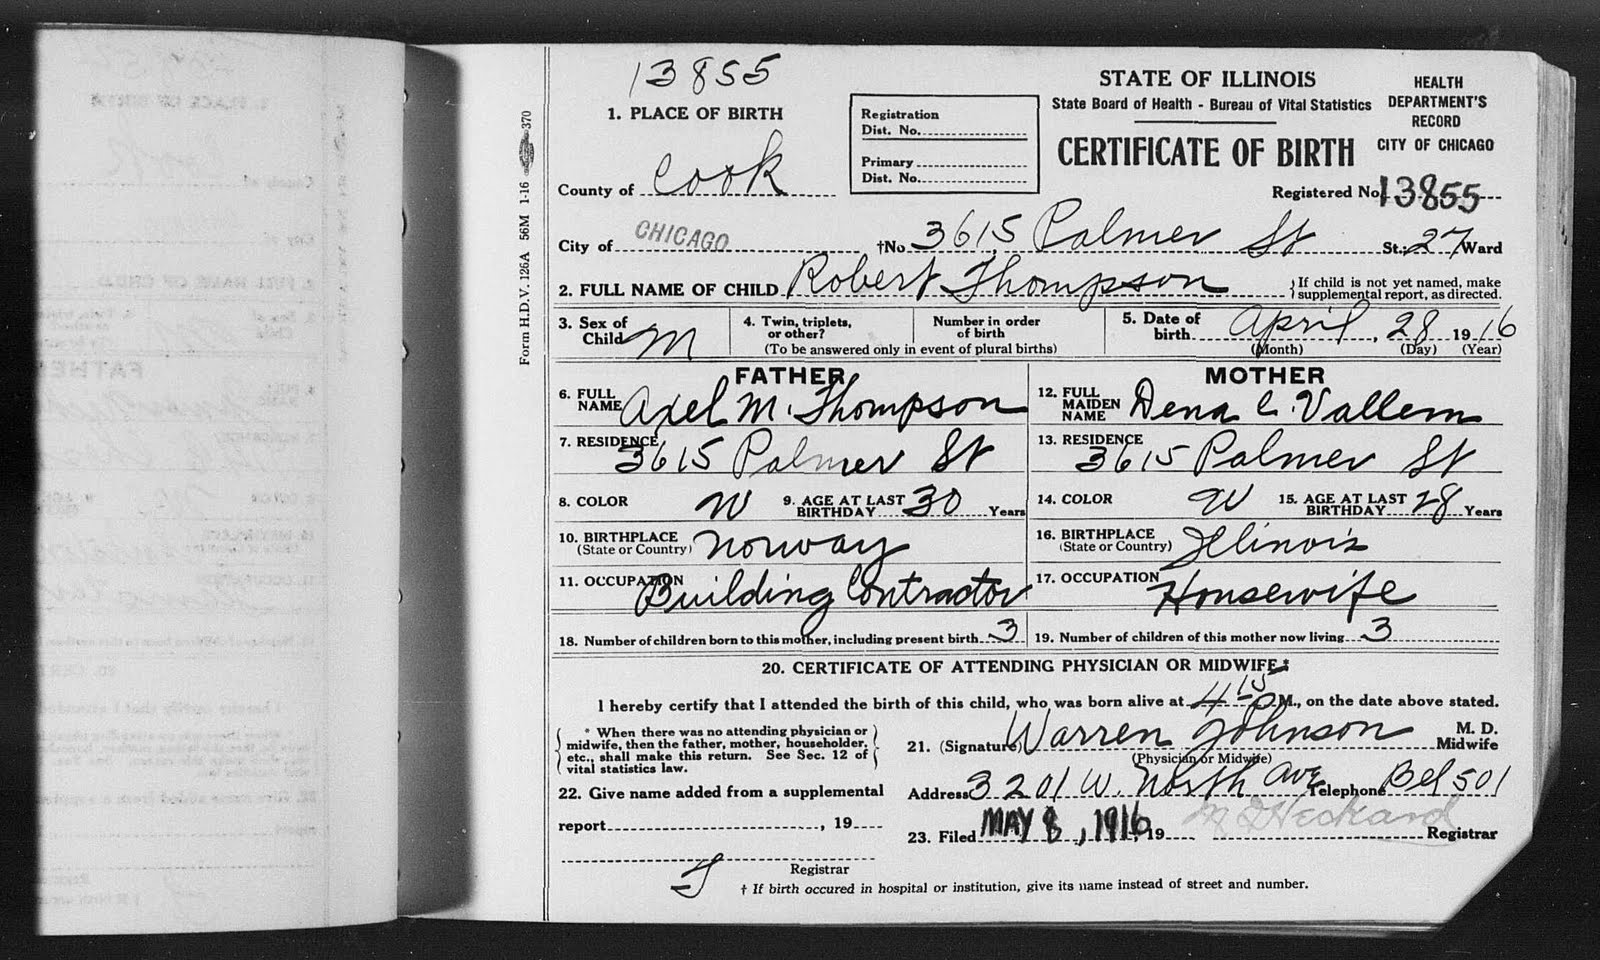 13855
STATE OF ILLINOIS
State Board of Health - Bureau of Vital Statistics
CERTIFICATE OF BIRTH
HEALTH
DEPARTMENT'S
RECORD
CITY OF CHICAGO
Registered No. 13855
Registration
Dist. No.
Primary
Dist. No.
Form H.D.V. 126A 56M 1-16 370
1. PLACE OF BIRTH
County of Cook
City of CHICAGO †No 3615 Palmer St St. 27 Ward
2. FULL NAME OF CHILD Robert Thompson { If child is not yet named, make
supplemental report, as directed.
3. Sex of
Child M
4. Twin, triplets,
or other?
Number in order
of birth
(To be answered only in event of plural births)
5. Date of
birth April, 28 1916
(Month) (Day) (Year)
FATHER
6. FULL
NAME Axel M. Thompson
7. RESIDENCE
3615 Palmer St
8. COLOR W 9. AGE AT LAST
BIRTHDAY 30 Years
10. BIRTHPLACE
(State or Country) Norway
11. OCCUPATION
Building Contractor
MOTHER
12. FULL
MAIDEN
NAME Dena C. Vallem
13. RESIDENCE
3615 Palmer St
14. COLOR W 15. AGE AT LAST
BIRTHDAY 28 Years
16. BIRTHPLACE
(State or Country) Illinois
17. OCCUPATION
Housewife
18. Number of children born to this mother, including present birth 3
19. Number of children of this mother now living 3
20. CERTIFICATE OF ATTENDING PHYSICIAN OR MIDWIFE*
I hereby certify that I attended the birth of this child, who was born alive at 4 15 P M., on the date above stated.
* When there was no attending physician or
midwife, then the father, mother, householder,
etc., shall make this return. See Sec. 12 of
vital statistics law.
21. (Signature) Warren Johnson M. D.
Midwife
(Physician or Midwife)
22. Give name added from a supplemental
report , 19
Registrar
Address 3201 W. North Ave Telephone Bel 501
23. Filed MAY 8, 1916, 19 Heckard Registrar
† If birth occured in hospital or institution, give its name instead of street and number.